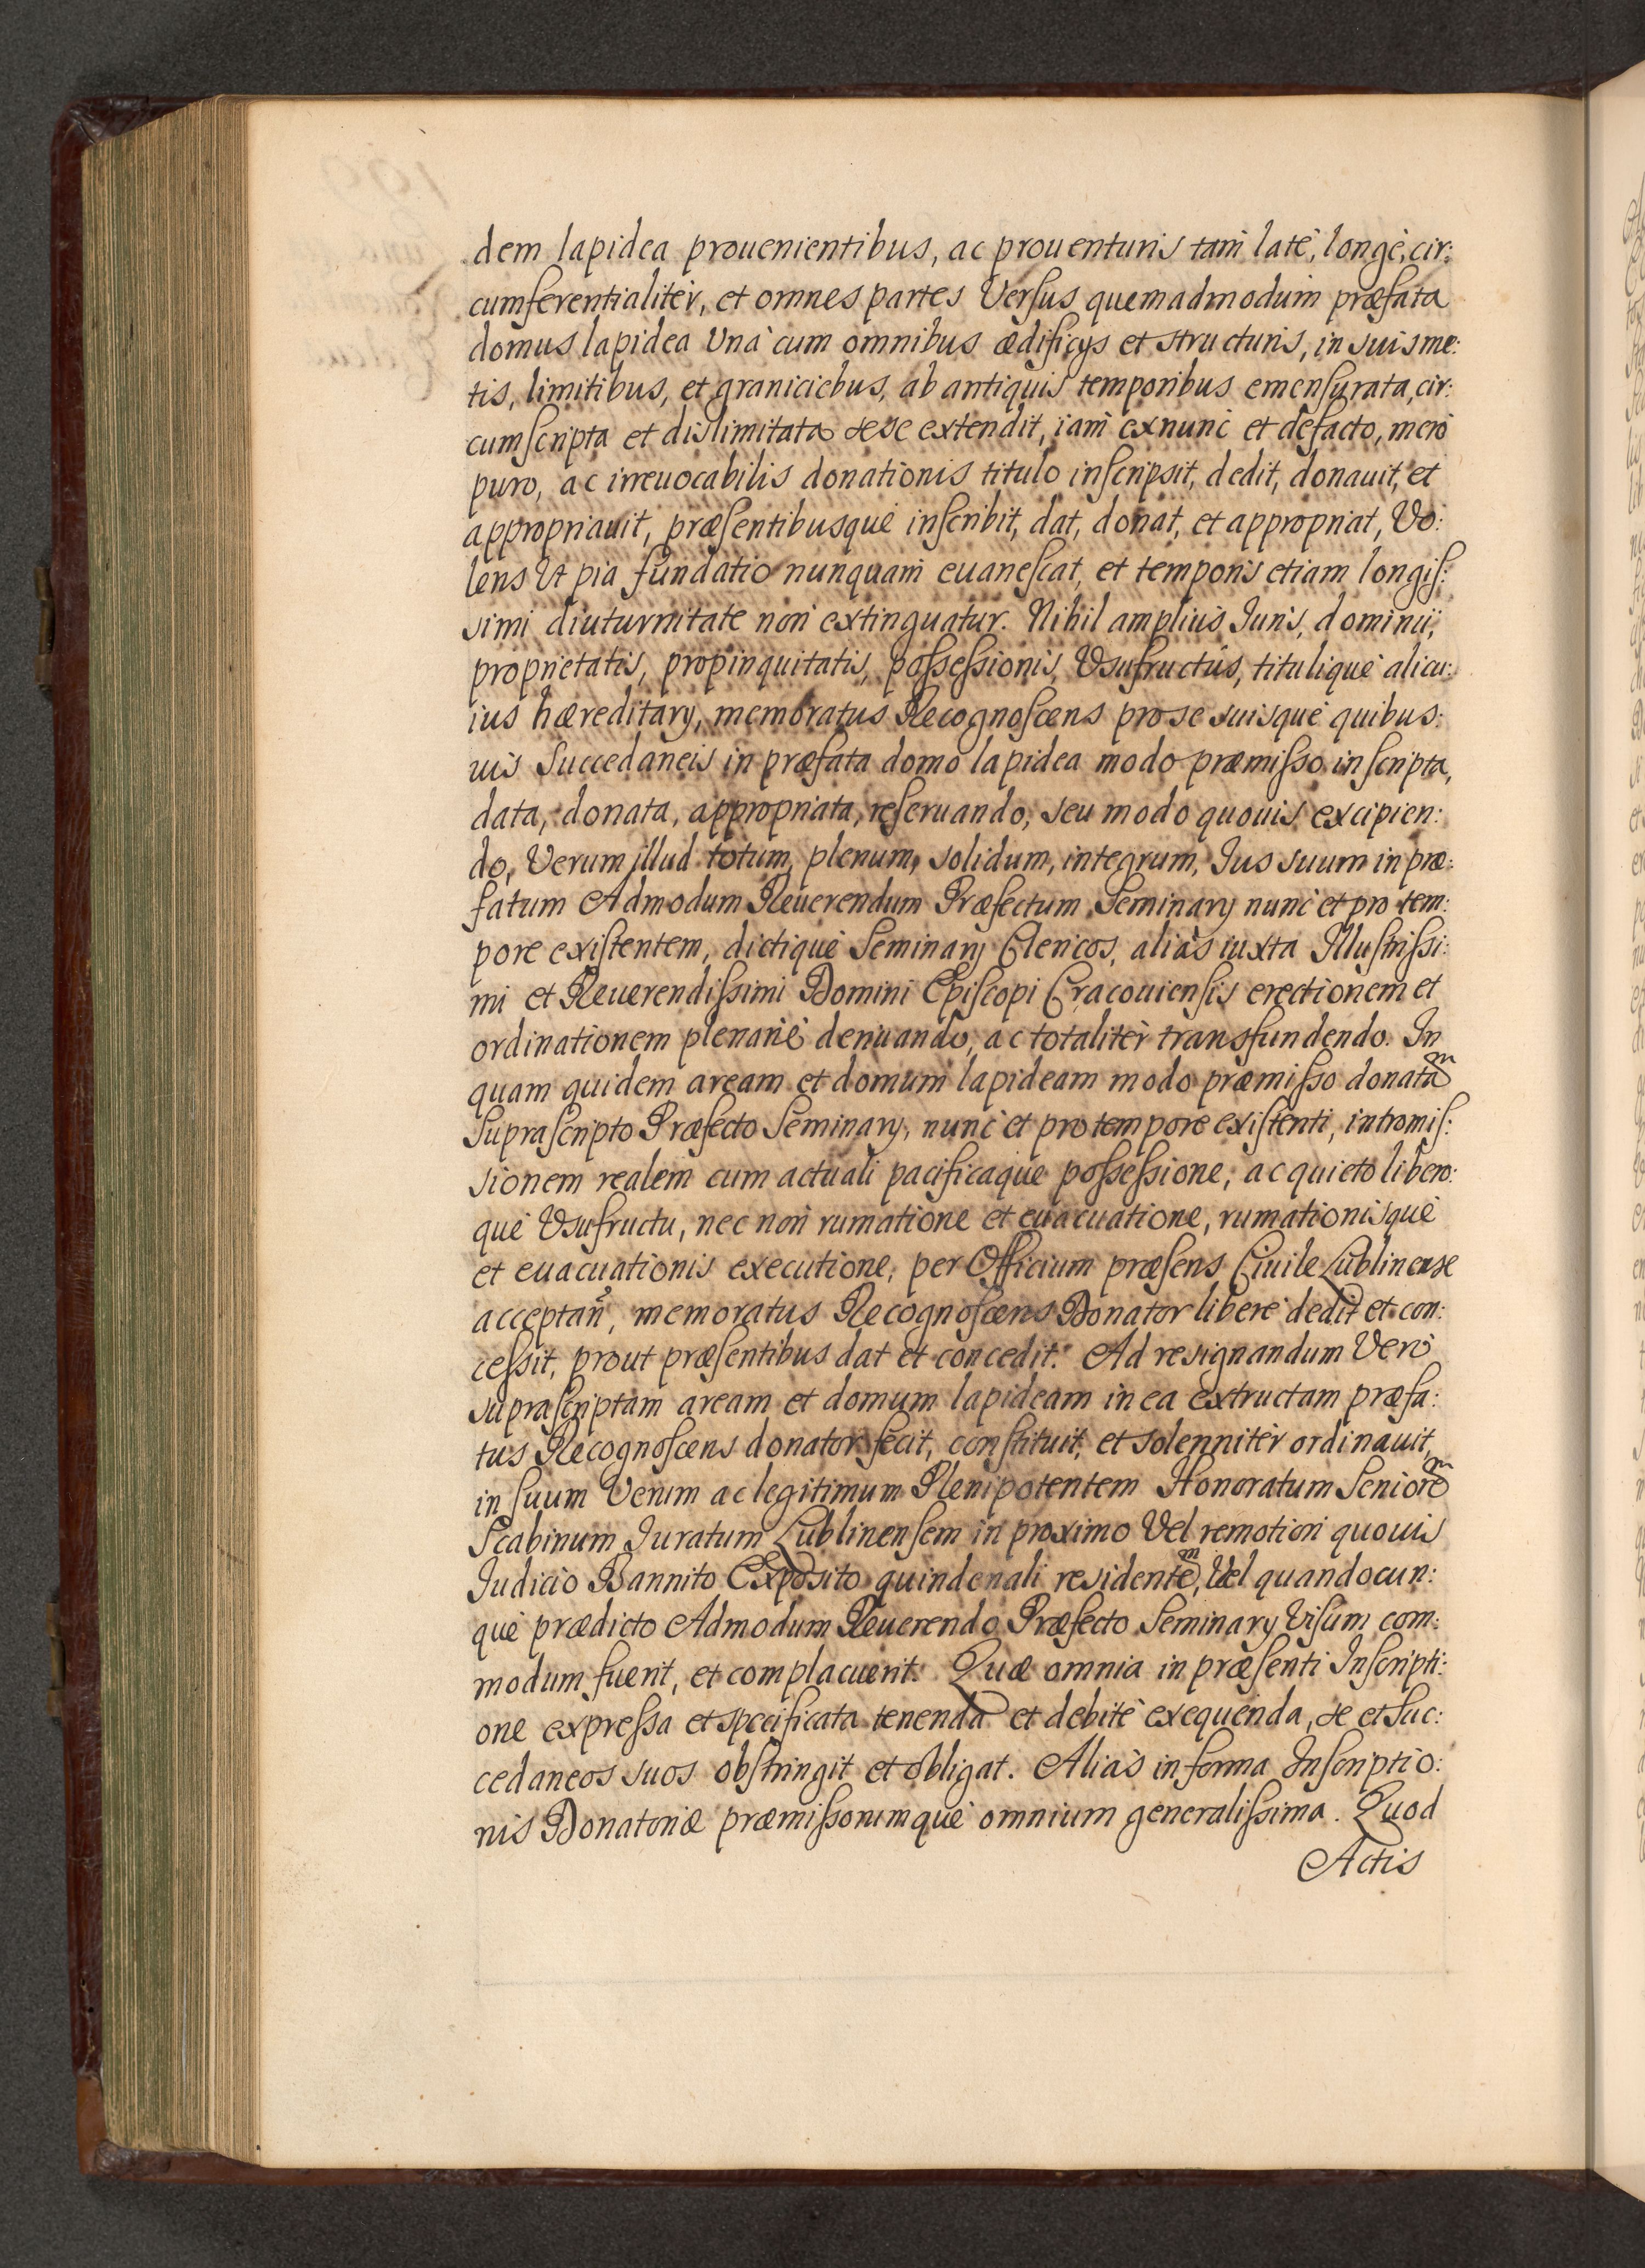 dem lapidea prouenientibus, ac prouenturis tam̀ latè, longè, cir:
cumferentialitèr, et omnes partes Versus quemadmodum̀ præfata
domus lapidea Vnà cum omnibus ædificys et structuris, in suis me:
tis, limitibus, et graniciebus, ab antiquis temporibus emensurata, cir:
cumscripta et dislimitata sese extendit, iam̀ exnunc̀ et defacto, merò
puro, ac irreuocabilis donationis titulo inscripsit, dedit, donauit, et
appropriauit, præsentibusquè inscribit, dat, donat, et appropriat, Vo:
lens Vt pia fundatio nunquam̀ euanescat, et temporis etiam longis:
simi diuturnitate noǹ extinguatur. Nihil amplius Iuris, dominii,
proprietatis, propinquitatis, possessionis, Vsufructûs, tituliquè alicu:
ius hæreditary, memoratus Recognoscens pro se suisquè quibus:
uis Succedaneis in præfata domo lapidea modo præmisso inscripta,
data, donata, appropriata, reseruando, seu modo quouis excipien:
do, Verum illud totum, plenum, solidum, integrum, Ius suum in præ:
fatum Admodum Reuerendum Præfectum Seminary nunc̀ et pro tem:
pore existentem, dictiquè Seminary Clericos, aliàs iuxta Illustrissi:
mi et Reuerendissimi Domini Episcopi Cracouiensis erectionem et
ordinationem plenariè deriuando, ac totalitèr transfundendo. In
quam quidem aream et domum lapideam modo præmisso donatam
Suprascripto Præfecto Seminary, nunc̀ et pro tempore existenti, intromis:
sionem realem̀ cum actuali pacificaquè possessione, ac quieto libero:
què Vsufructu, nec noǹ rumatione et euacuatione, rumationisquè
et euacuationis executione, per Officium præsens Ciuile Lublinense
acceptañ, memoratus Recognoscens Donator liberè dedit et con:
cessit, prout præsentibus dat et concedit. Ad resignandum Verò
suprascriptam aream et domum lapideam in ea extructam præfa:
tus Recognoscens donator fecit, constituit, et solennitèr ordinauit,
in suum Verum ac legitimum Plenipotentem Honoratum Seniorem
Scabinum Iuratum Lublinensem in proximo Vel remotiori quouis
Iudicio Bannito Exposito quindenali residentem, Vel quandocun:
què prædicto Admodum Reuerendo Præfecto Seminary Visum com:
modum fuerit, et complacuerit. Quæ omnia in præsenti Inscripti:
one expressa et specificata tenenda et debitè exequenda, se et Suc:
cedaneos suos obstringit et obligat. Aliàs in forma Inscriptio:
nis Donatoriæ præmissorumquè omnium generalissima. Quod
Actis